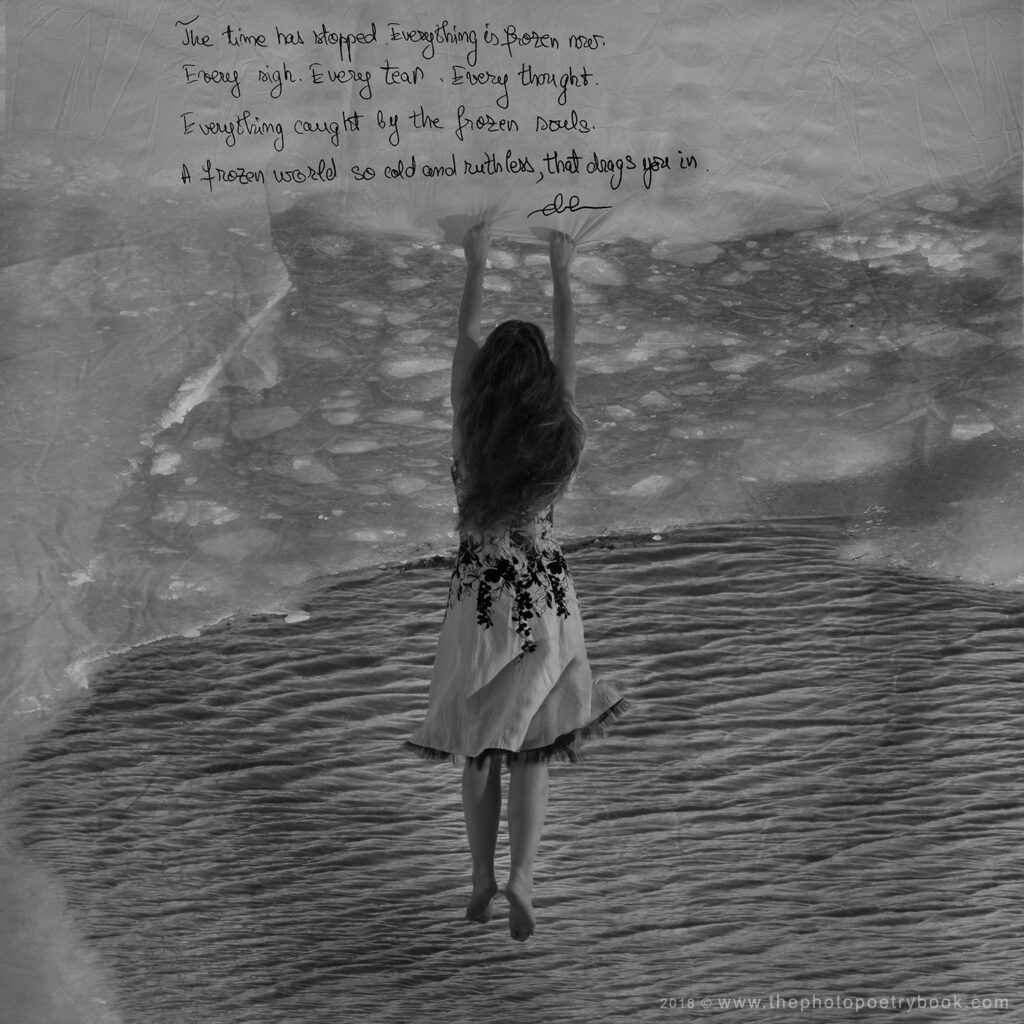 The time has stopped. Everything is frozen now.
Every sigh. Every tear. Every thought.
Everything caught by the frozen souls.
A frozen world so cold and ruthless, that drags you in.
2018 © www.thephotopoetrybook.com